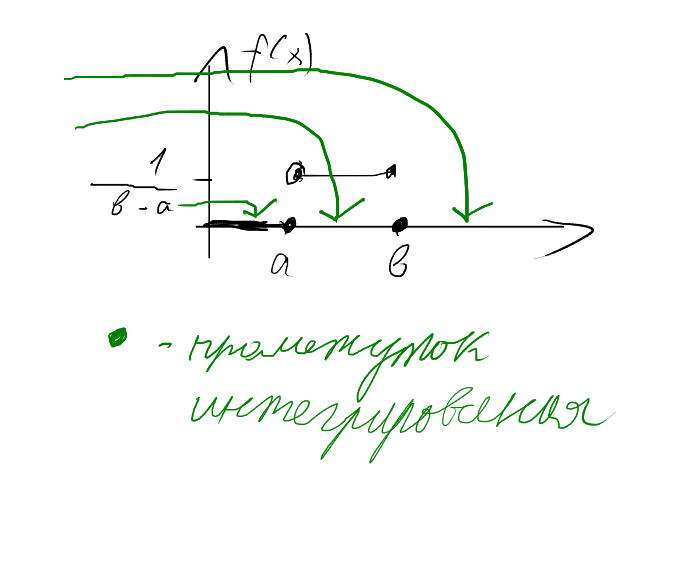 f(x)
1
в - а
а
в
- промежуток
интегрирования